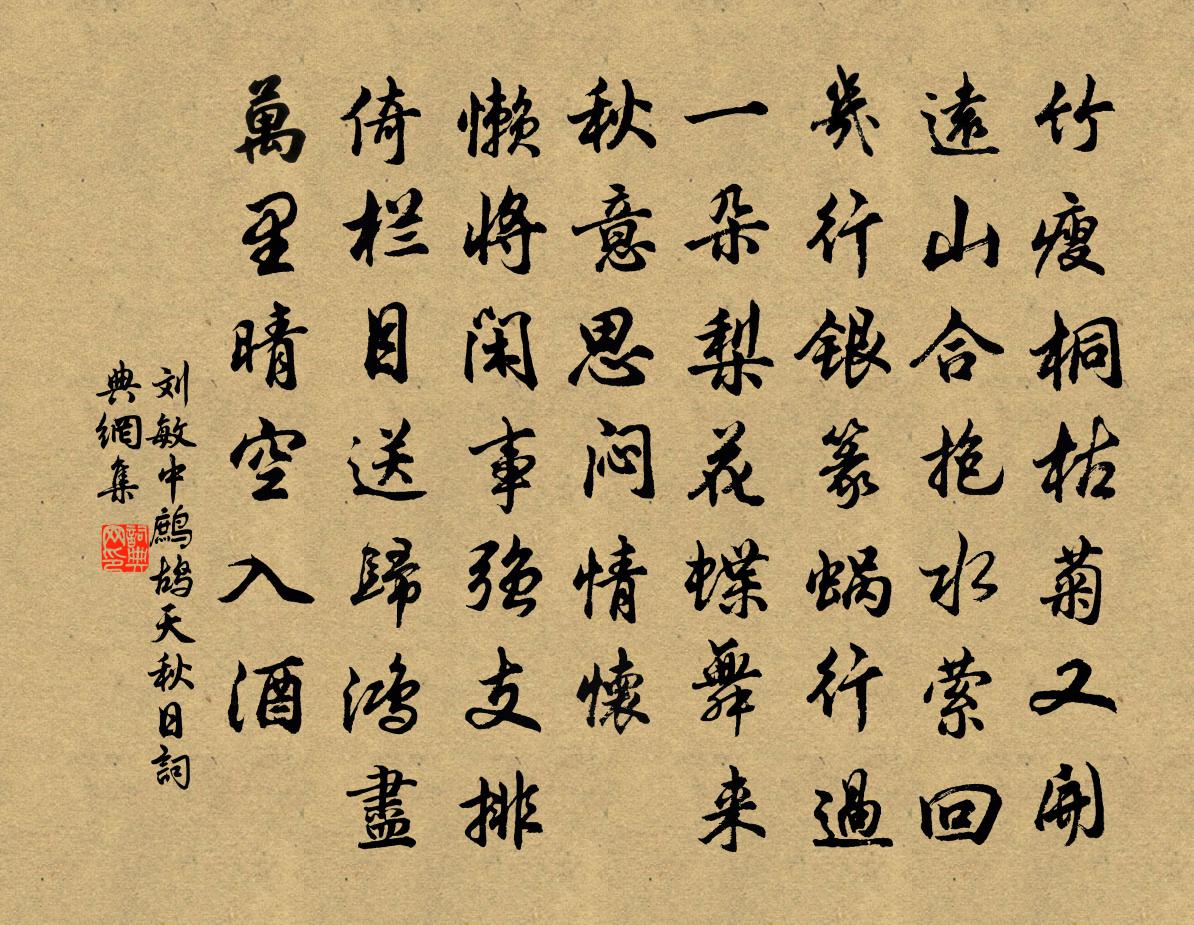 竹瘦桐枯菊又開
遠山合抱水萦回
幾行銀篆蜗行過
一朵梨花蝶舞来
秋意思闷情懷
懒將闲事强支排
倚栏目送歸鴻盡
萬里晴空入酒
刘敏中鷓鴣天秋日詞
典網集
詞典网印